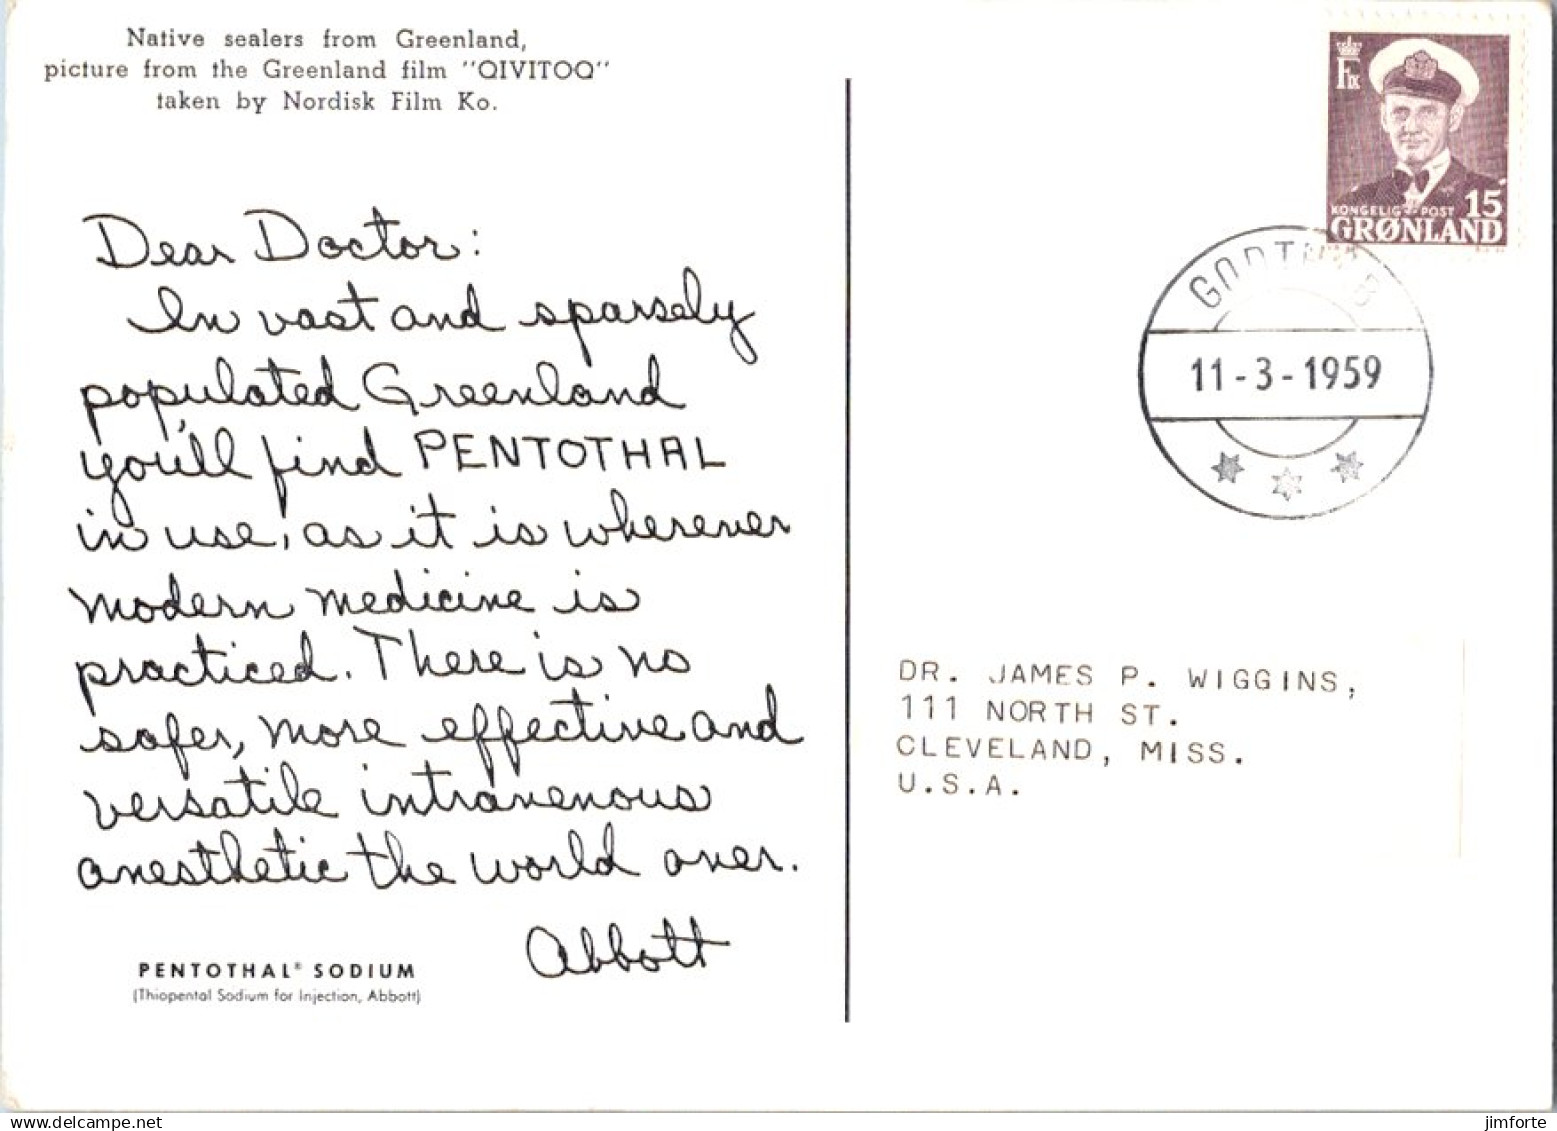 Native sealers from Greenland,
picture from the Greenland film "QIVITOQ"
taken by Nordisk Film Ko.
Dear Doctor:
In vast and sparsely
populated Greenland
you'll find PENTOTHAL
in use, as it is wherever
modern medicine is
practiced. There is no
safer, more effective and
versatile intravenous
anesthetic the world over.
Abbott
PENTOTHAL® SODIUM
(Thiopental Sodium for Injection, Abbott)
F IX
KONGELIG POST 15
GRØNLAND
GODTHAB
11-3-1959
DR. JAMES P. WIGGINS,
111 NORTH ST.
CLEVELAND, MISS.
U.S.A.
delcampe.net
jimforte